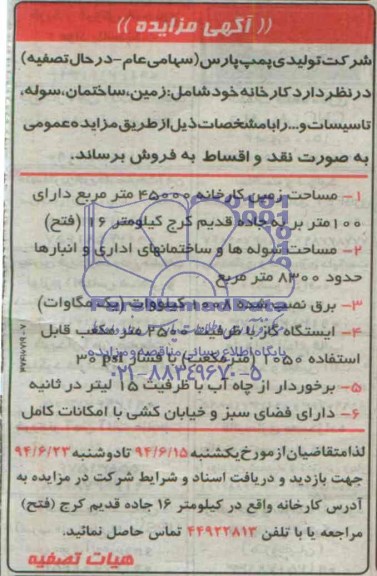 (( آگهی مزایده ))
شرکت تولیدی پمپ پارس (سهامی عام - در حال تصفیه)
در نظر دارد کارخانه خود شامل: زمین، ساختمان، سوله،
تاسیسات و... را با مشخصات ذیل از طریق مزایده عمومی
به صورت نقد و اقساط به فروش برساند.
۱- مساحت زمین کارخانه ۴۵۰۰۰ متر مربع دارای
۱۰۰ متر بر به جاده قدیم کرج کیلومتر ۱۶ (فتح)
۲- مساحت سوله ها و ساختمانهای اداری و انبارها
حدود ۸۳۰۰ متر مربع
۳- برق نصب شده ۱۰۰۸ کیلووات (یک مگاوات)
۴- ایستگاه گاز با ظرفیت ۲۵۰۰ متر مکعب قابل
استفاده (۱۰۵۰ مترمکعب) با فشار ۳۰ psi
۵- برخوردار از چاه آب با ظرفیت ۱۵ لیتر در ثانیه
۶- دارای فضای سبز و خیابان کشی با امکانات کامل
لذا متقاضیان از مورخ یکشنبه ۹۴/۶/۱۵ تا دوشنبه ۹۴/۶/۲۳
جهت بازدید و دریافت اسناد و شرایط شرکت در مزایده به
آدرس کارخانه واقع در کیلومتر ۱۶ جاده قدیم کرج (فتح)
مراجعه یا با تلفن ۴۴۹۲۲۸۱۳ تماس حاصل نمائید.
هیات تصفیه
ParsNamadData
پایگاه اطلاع رسانی مناقصه و مزایده
۰۲۱-۸۸۳۴۹۶۷۰-۵